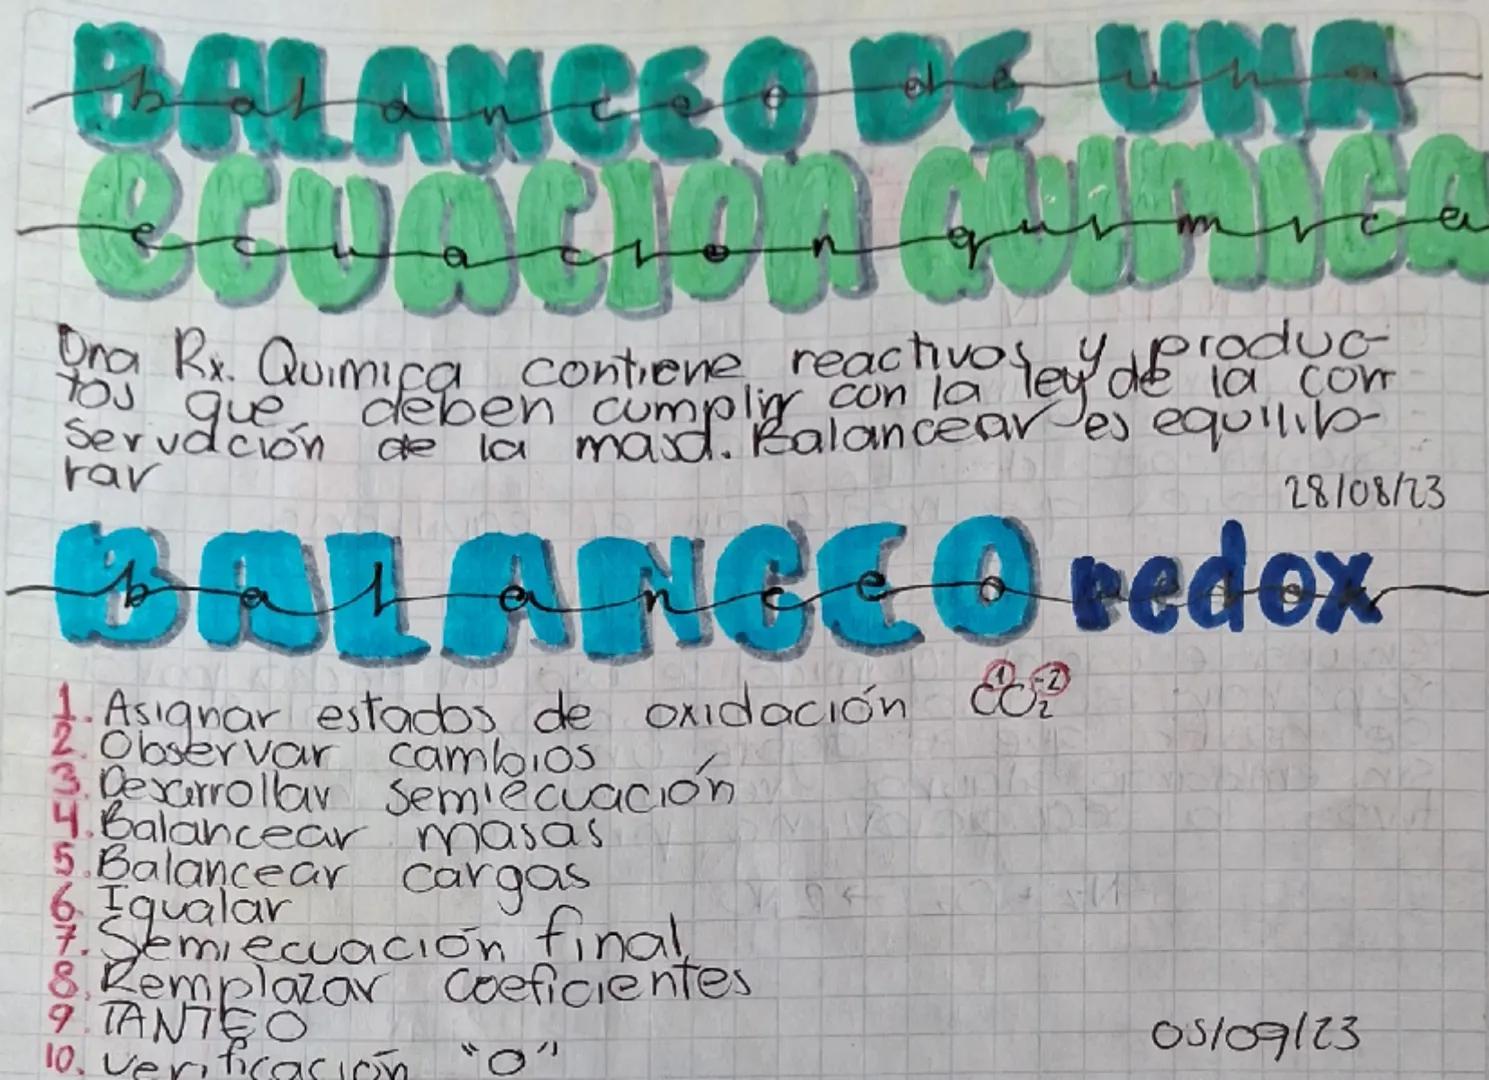 BALANCEO DE UNA
balanceo de una
ECUACION QUIMICA
ecuacion quimica
Una Rx. Quimica contiene reactivos y produc-
tos que deben cumplir con la ley de la con
servación de la masa. Balancear es equilib-
rar
28/08/23
BALANCEO redox
balanceo redox
1. Asignar estados de oxidación
2. Observar cambios
3. Desarrollar semiecuación
4. Balancear masas
5. Balancear cargas
6. Igualar
7. Semiecuación final
8. Remplazar coeficientes
9. TANTEO
05/09/23
10. Verificación "O"